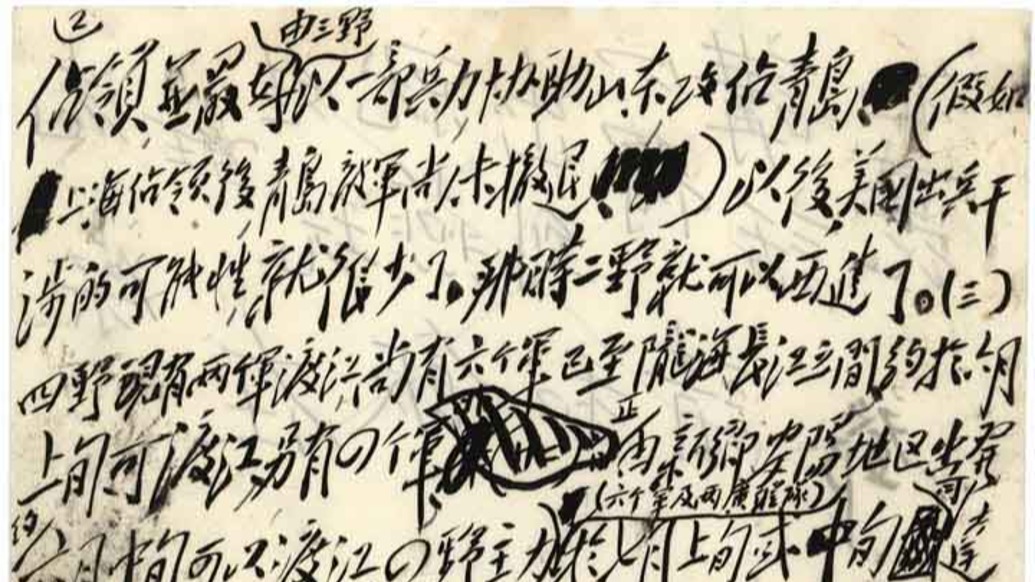 由三野
佔領並最好以一部兵力協助山东攻佔青島(假如
上海佔領後青島敵軍尚未撤退)以後美國出兵干
涉的可能性就很少了。那時二野就可以西進了。(三)
四野現有两個軍渡江尚有六个軍已至隴海長江之間約於六月
上旬可渡江另有四个軍正由新鄉安陽地区出發
(六个軍及两廣縱隊)
約六月中旬可以渡江四野主力於七月上旬或中旬可達